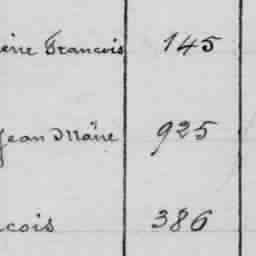 Francois 145
Jean Marie 925
cois 386